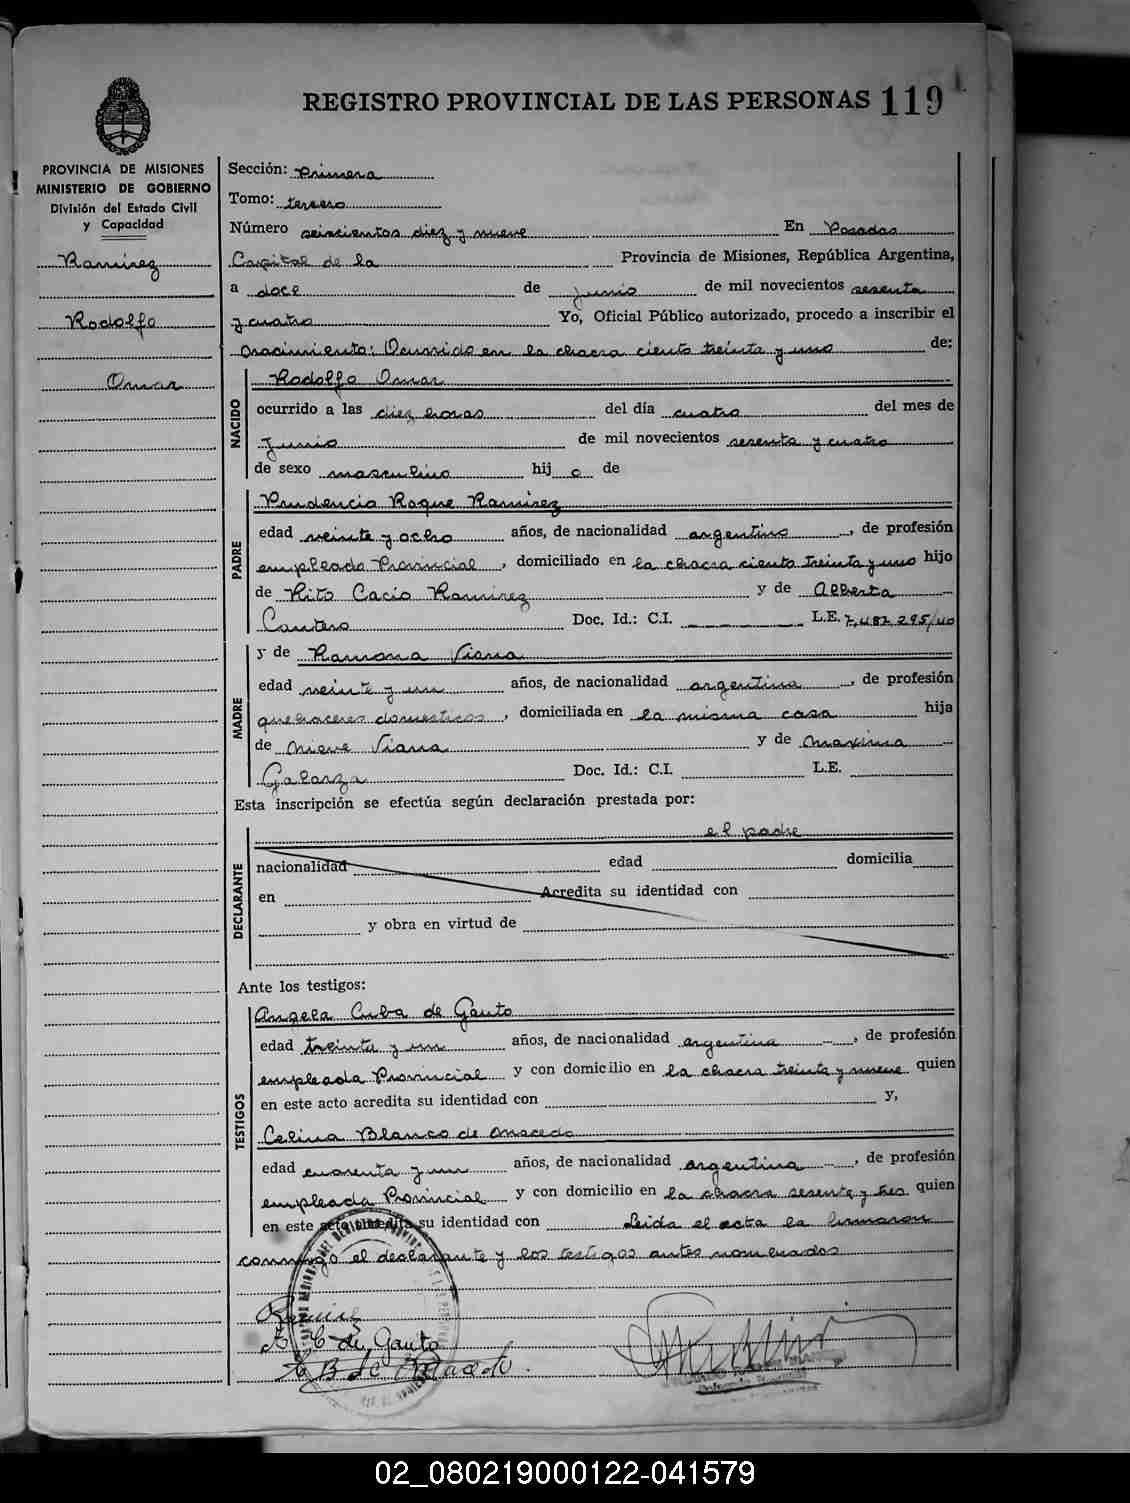 REGISTRO PROVINCIAL DE LAS PERSONAS 119
PROVINCIA DE MISIONES
MINISTERIO DE GOBIERNO
División del Estado Civil
y Capacidad
Ramirez
Rodolfo
Omar
Sección: Primera
Tomo: tercero
Número seiscientos diez y nueve En Posadas
Capital de la Provincia de Misiones, República Argentina,
a doce de junio de mil novecientos sesenta
y cuatro Yo, Oficial Público autorizado, procedo a inscribir el
nacimiento: Ocurrido en la chacra ciento treinta y uno de:
NACIDO
Rodolfo Omar
ocurrido a las diez horas del día cuatro del mes de
Junio de mil novecientos sesenta y cuatro
de sexo masculino hij o de
PADRE
Prudencio Roque Ramirez
edad veinte y ocho años, de nacionalidad argentino, de profesión
empleado Provincial, domiciliado en la chacra ciento treinta y uno hijo
de Rito Cacio Ramirez y de Alberta
Cantero Doc. Id.: C.I. L.E. 7,482,295/40
MADRE
y de Ramona Viana
edad veinte y un años, de nacionalidad argentina, de profesión
quehaceres domesticos, domiciliada en la misma casa hija
de Nieve Viana y de Maxima
Galarza Doc. Id.: C.I. L.E.
Esta inscripción se efectúa según declaración prestada por:
DECLARANTE
el padre
nacionalidad edad domicilia
en Acredita su identidad con
y obra en virtud de
Ante los testigos:
TESTIGOS
Angela Cuba de Gauto
edad treinta y un años, de nacionalidad argentina, de profesión
empleada Provincial y con domicilio en la chacra treinta y nueve quien
en este acto acredita su identidad con y,
Celina Blanco de Macedo
edad cuarenta y un años, de nacionalidad argentina, de profesión
empleada Provincial y con domicilio en la chacra sesenta y tres quien
en este acto acredita su identidad con Leida el acta la firmaron
conmigo el declarante y los testigos antes nombrados
A C de Gauto
C B de Macedo
02_080219000122-041579